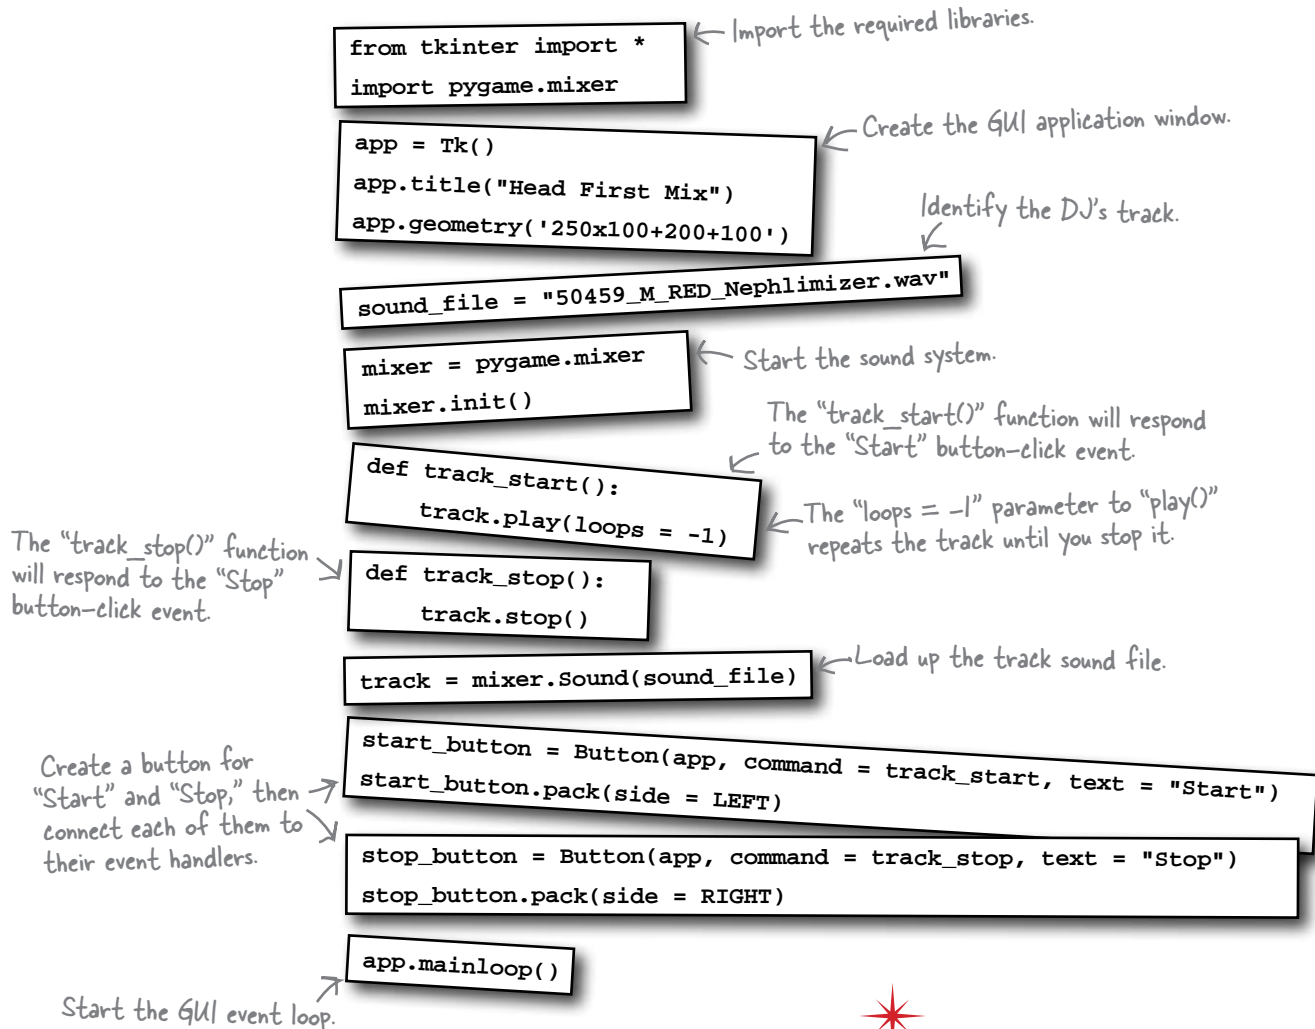 from tkinter import *
import pygame.mixer
Import the required libraries.
app = Tk()
app.title("Head First Mix")
app.geometry('250x100+200+100')
Create the GUI application window.
Identify the DJ's track.
sound_file = "50459_M_RED_Nephlimizer.wav"
mixer = pygame.mixer
mixer.init()
Start the sound system.
The “track_start()” function will respond
to the “Start” button-click event.
def track_start():
track.play(loops = -1)
The “loops = -1” parameter to “play()”
repeats the track until you stop it.
The “track_stop()” function
will respond to the “Stop”
button-click event.
def track_stop():
track.stop()
track = mixer.Sound(sound_file)
Load up the track sound file.
Create a button for
“Start” and “Stop,” then
connect each of them to
their event handlers.
start_button = Button(app, command = track_start, text = "Start")
start_button.pack(side = LEFT)
stop_button = Button(app, command = track_stop, text = "Stop")
stop_button.pack(side = RIGHT)
app.mainloop()
Start the GUI event loop.